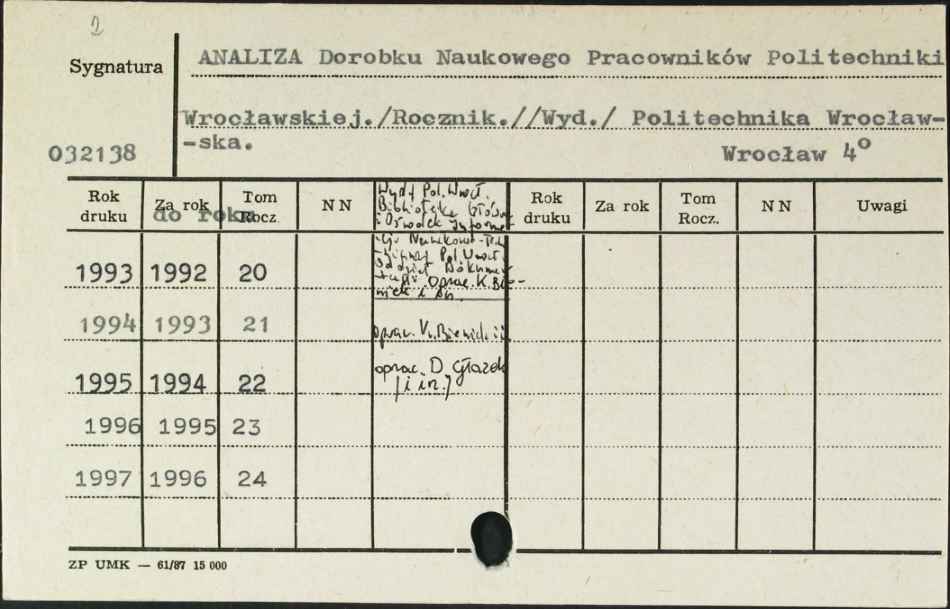 2
Sygnatura
ANALIZA Dorobku Naukowego Pracowników Politechniki
Wrocławskiej./Rocznik.//Wyd./ Politechnika Wrocław-
-ska.
032138
Wrocław 4º
Rok druku Za rok Tom Rocz. NN Rok druku Za rok Tom Rocz. NN Uwagi
do roku
Wyd. Pol. Wrocł.
Biblioteka Główna
i Ośrodek Inform
Naukowo-Tech
Pol. Wrocł.
Oddział Dokumen
oprac. K. Bie-
i in.
1993 1992 20
1994 1993 21 oprac. K.
1995 1994 22 oprac. D. Głazek
[i in.]
1996 1995 23
1997 1996 24
ZP UMK — 61/87 15 000